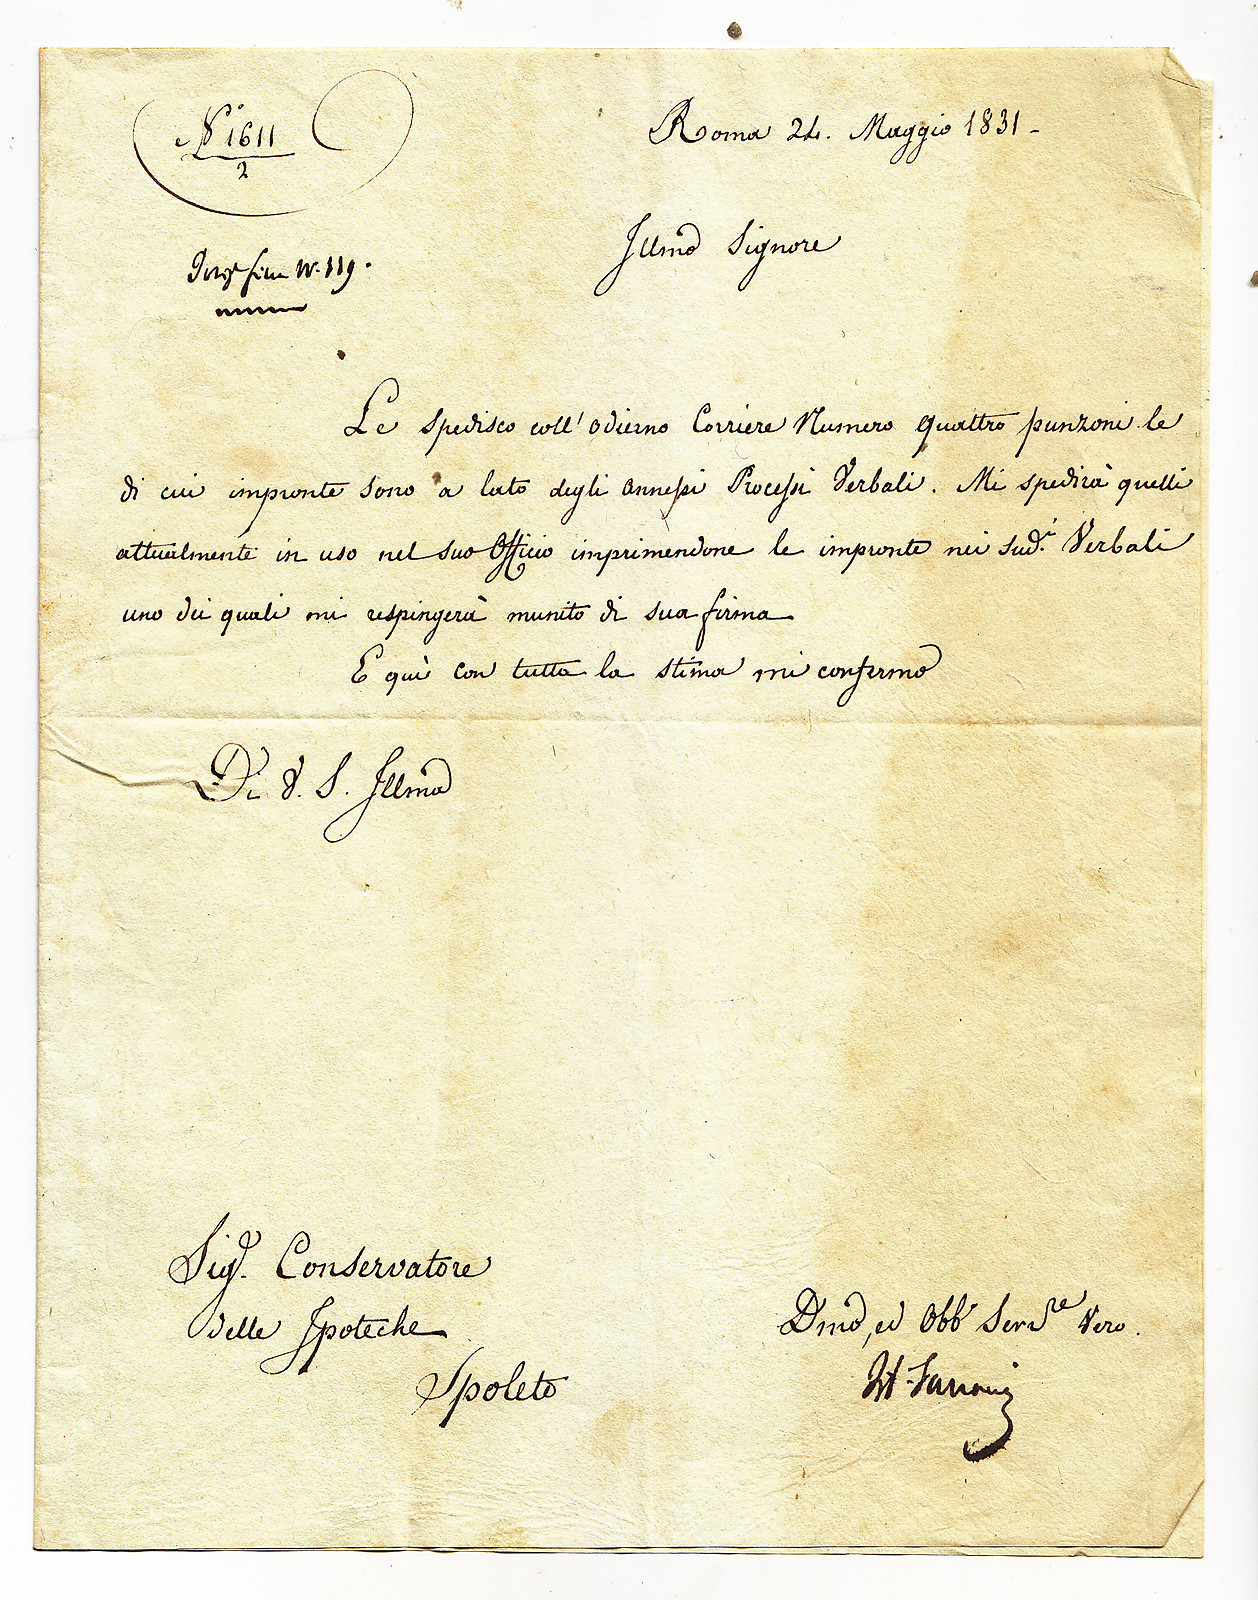 N° 1611
2
Roma 24. Maggio 1831 -
N. 119.
Illmo Signore
Le spedisco coll' odierno Corriere Numero quattro punzoni le
di cui impronte sono a lato degli annessi Processi Verbali. Mi spedirà quelli
attualmente in uso nel suo Officio imprimendone le impronte nei sudi. Verbali
uno dei quali mi respingerà munito di sua firma
E quì con tutta la stima mi confermo
Di V. S. Illma
Sigr. Conservatore
delle Ipoteche
Spoleto
Dmo, ed Obb Servre Vero.